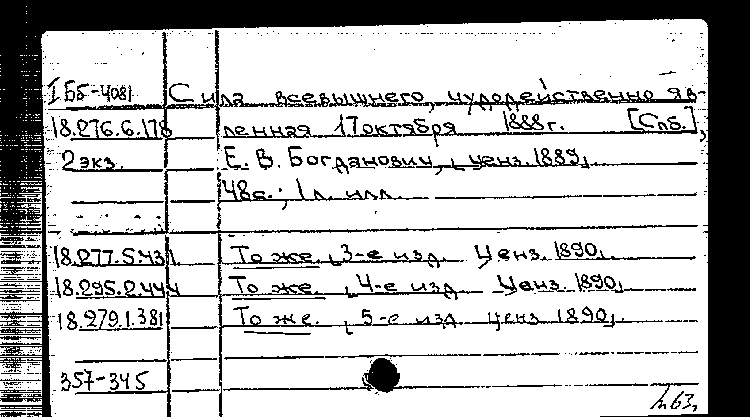 I ББ-4081 Сила всевышнего, чудодейственно яв-
18.276.6.178 ленная 17 октября 1888 г. [Спб.],
2 экз. Е. В. Богданович, ценз. 1889,
48 с.; 1 л. илл.
18.277.5.431 То же. 3-е изд. Ценз. 1890,
18.295.2.444 То же. 4-е изд. Ценз. 1890,
18.279.1.381 То же. 5-е изд. Ценз 1890,
357-345